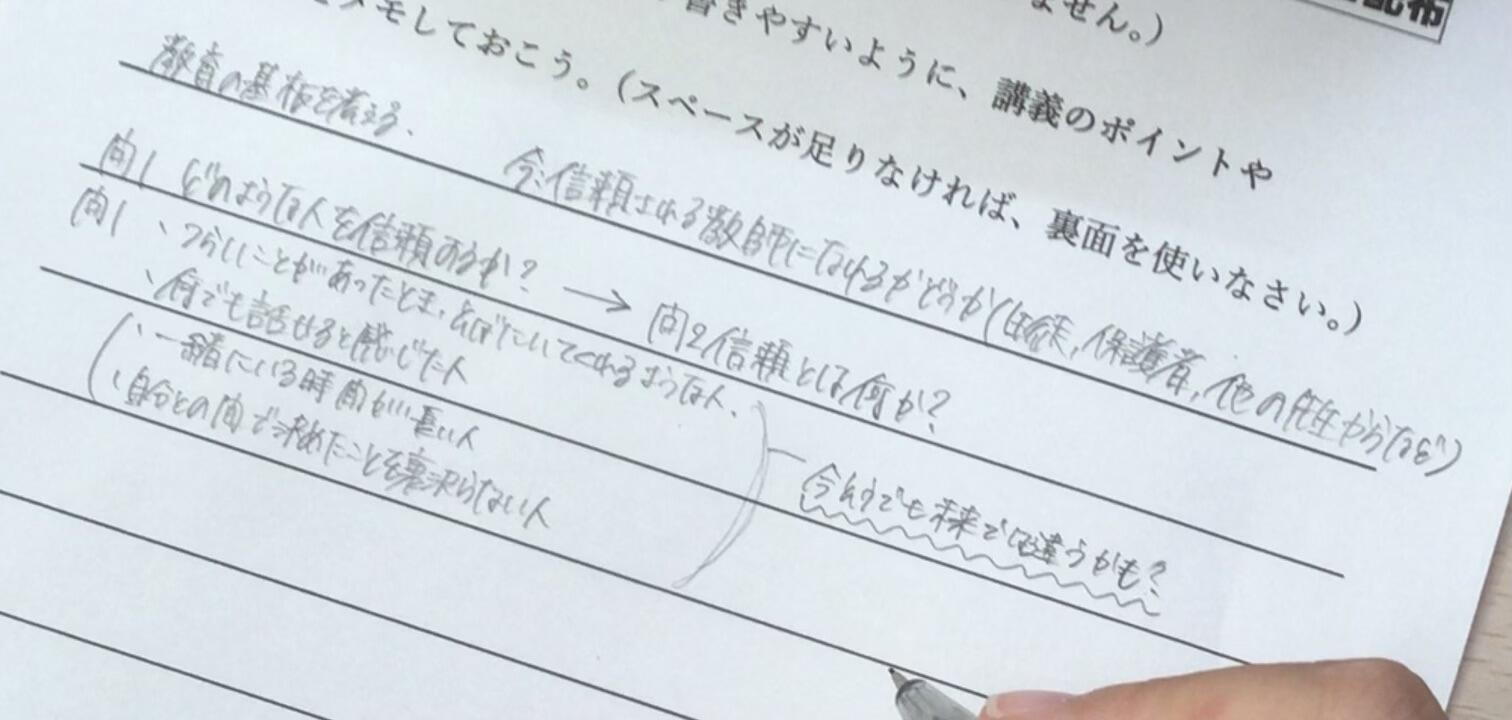 配布
ません。）
書きやすいように、講義のポイントや
メモしておこう。（スペースが足りなければ、裏面を使いなさい。）
教育の基板を考える.
今:信頼される教師になれるかどうか(生徒,保護者,他の先生からなど)
問1 どのような人を信頼するか? → 問2信頼とは何か?
問1 、つらいことがあったとき,そばにいてくれるような人.
、何でも話せると感じた人
、一緒にいる時間が長い人
、自分との間で決めたことを裏沢らない人
今そうでも未来では違うかも?